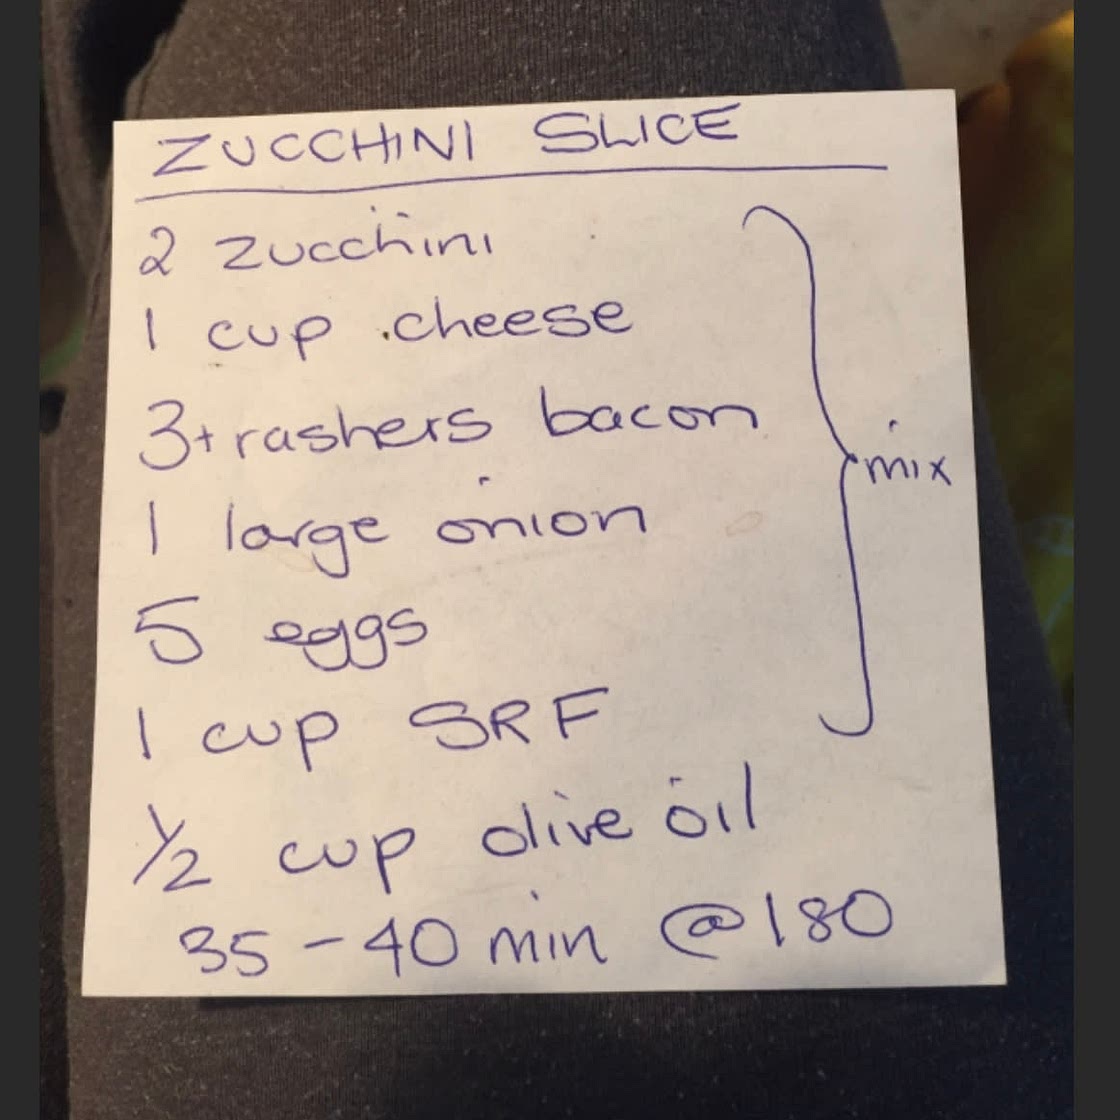 ZUCCHINI SLICE
2 zucchini
1 cup cheese
3+ rashers bacon
1 large onion
5 eggs
1 cup SRF
mix
1/2 cup olive oil
35-40 min @180